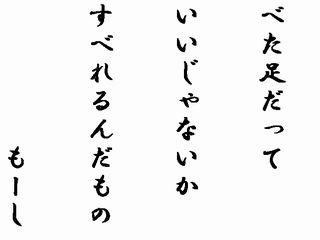 べた足だって
いいじゃないか
すべれるんだもの
もーし